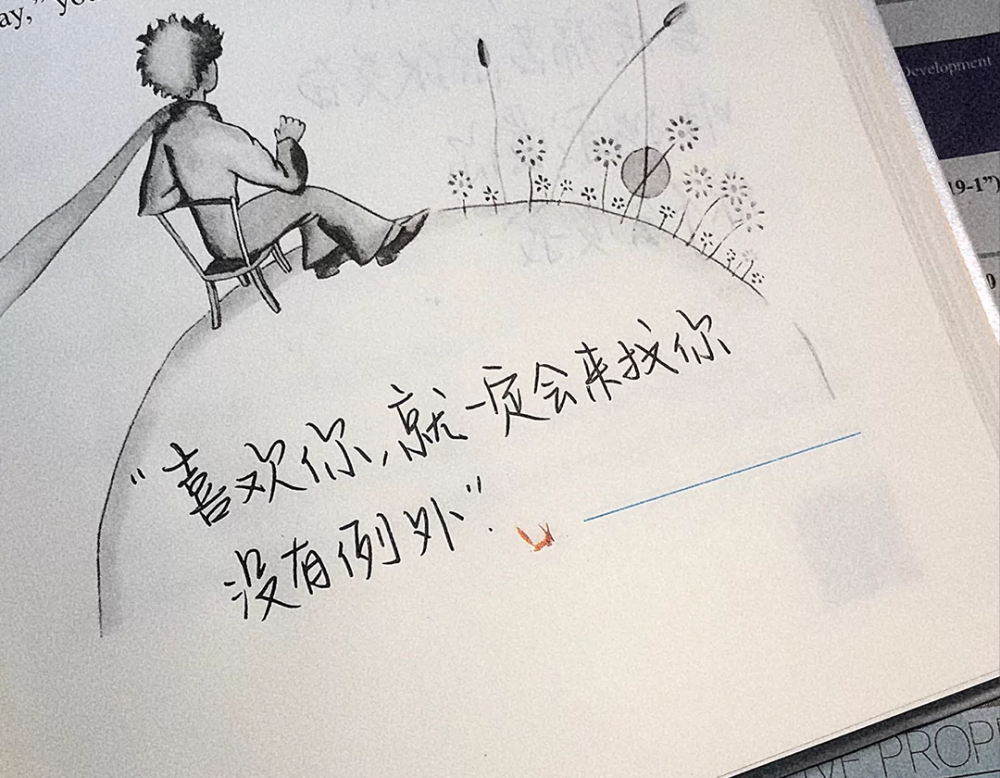 ay,"
Development
19-1")
"喜欢你,就一定会来找你
没有例外".
VE PROP